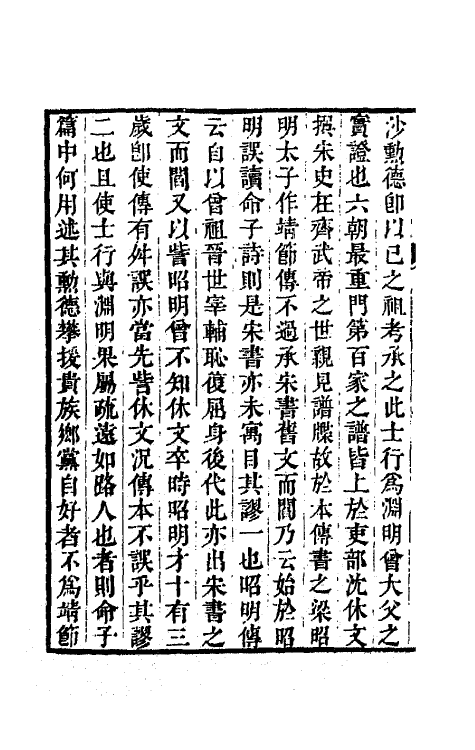 沙勳德卽以已之祖考承之此士行爲淵明曾大父之
實證也六朝最重門第百家之譜皆上於吏部沈休文
撰宋史在齊武帝之世親見譜牒故於本傳書之梁昭
明太子作靖節傳不過承宋書舊文而閻乃云始於昭
明誤讀命子詩則是宋書亦未寓目其謬一也昭明傳
云自以曾祖晉世宰輔恥復屈身後代此亦出宋書之
文而閻又以訾昭明曾不知休文卒時昭明才十有三
歲卽使傳有舛誤亦當先訾休文況傳本不誤乎其謬
二也且使士行與淵明果屬疏遠如路人也者則命子
篇中何用述其勳德攀援貴族鄉黨自好者不爲靖節